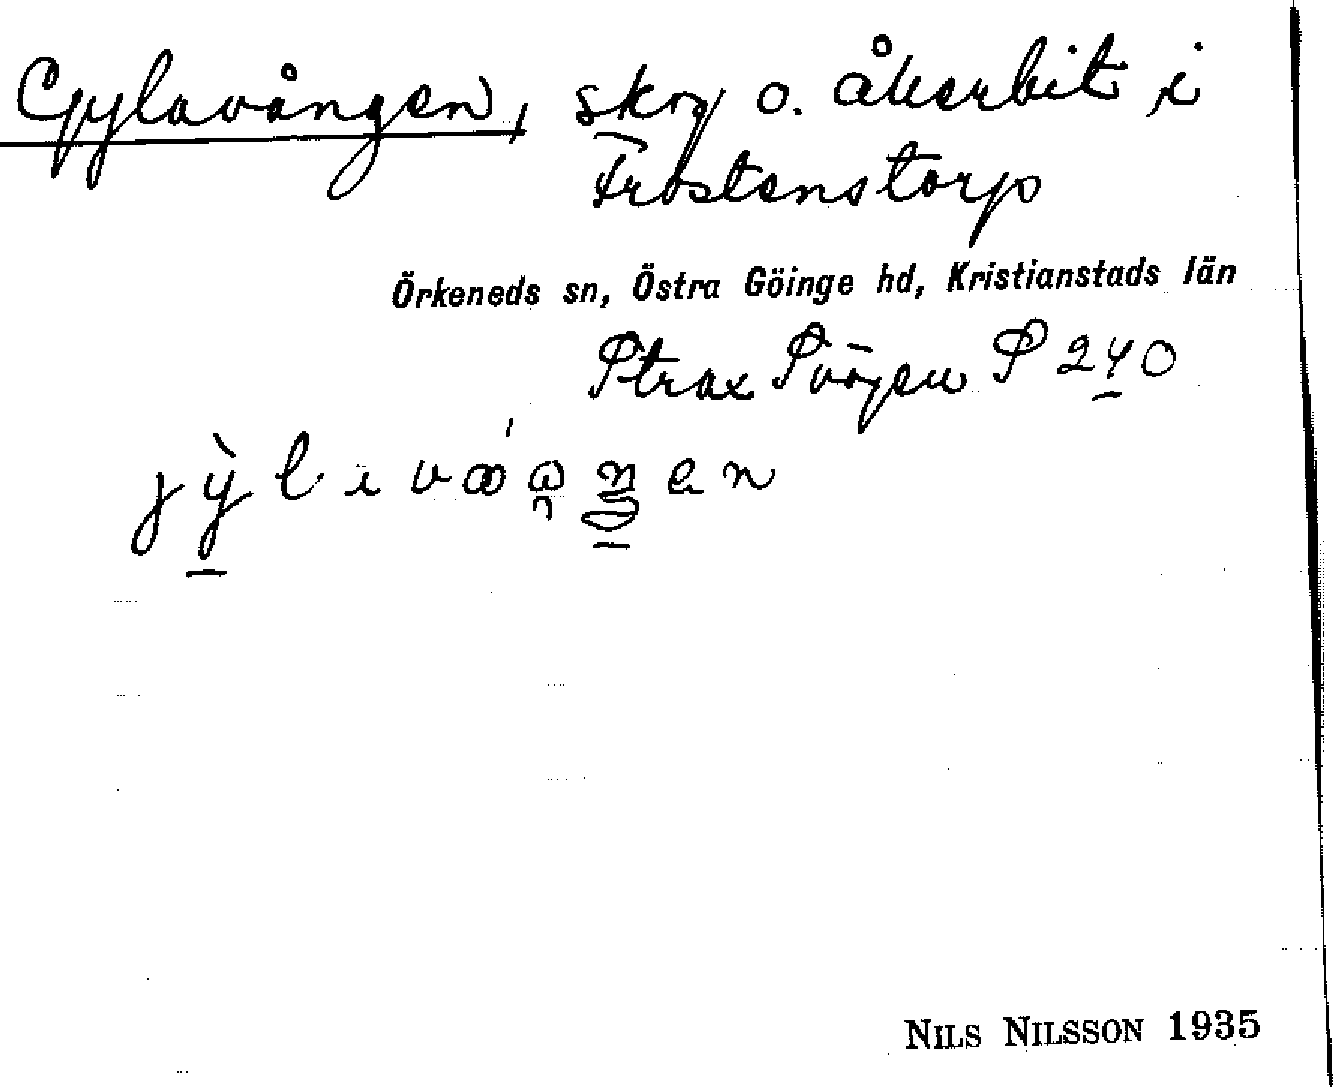 Gylavången, skog o. åkerbit i
Frostenstorp
Örkeneds sn, Östra Göinge hd, Kristianstads län
Strax S vägen S 240
NILS NILSSON 1935